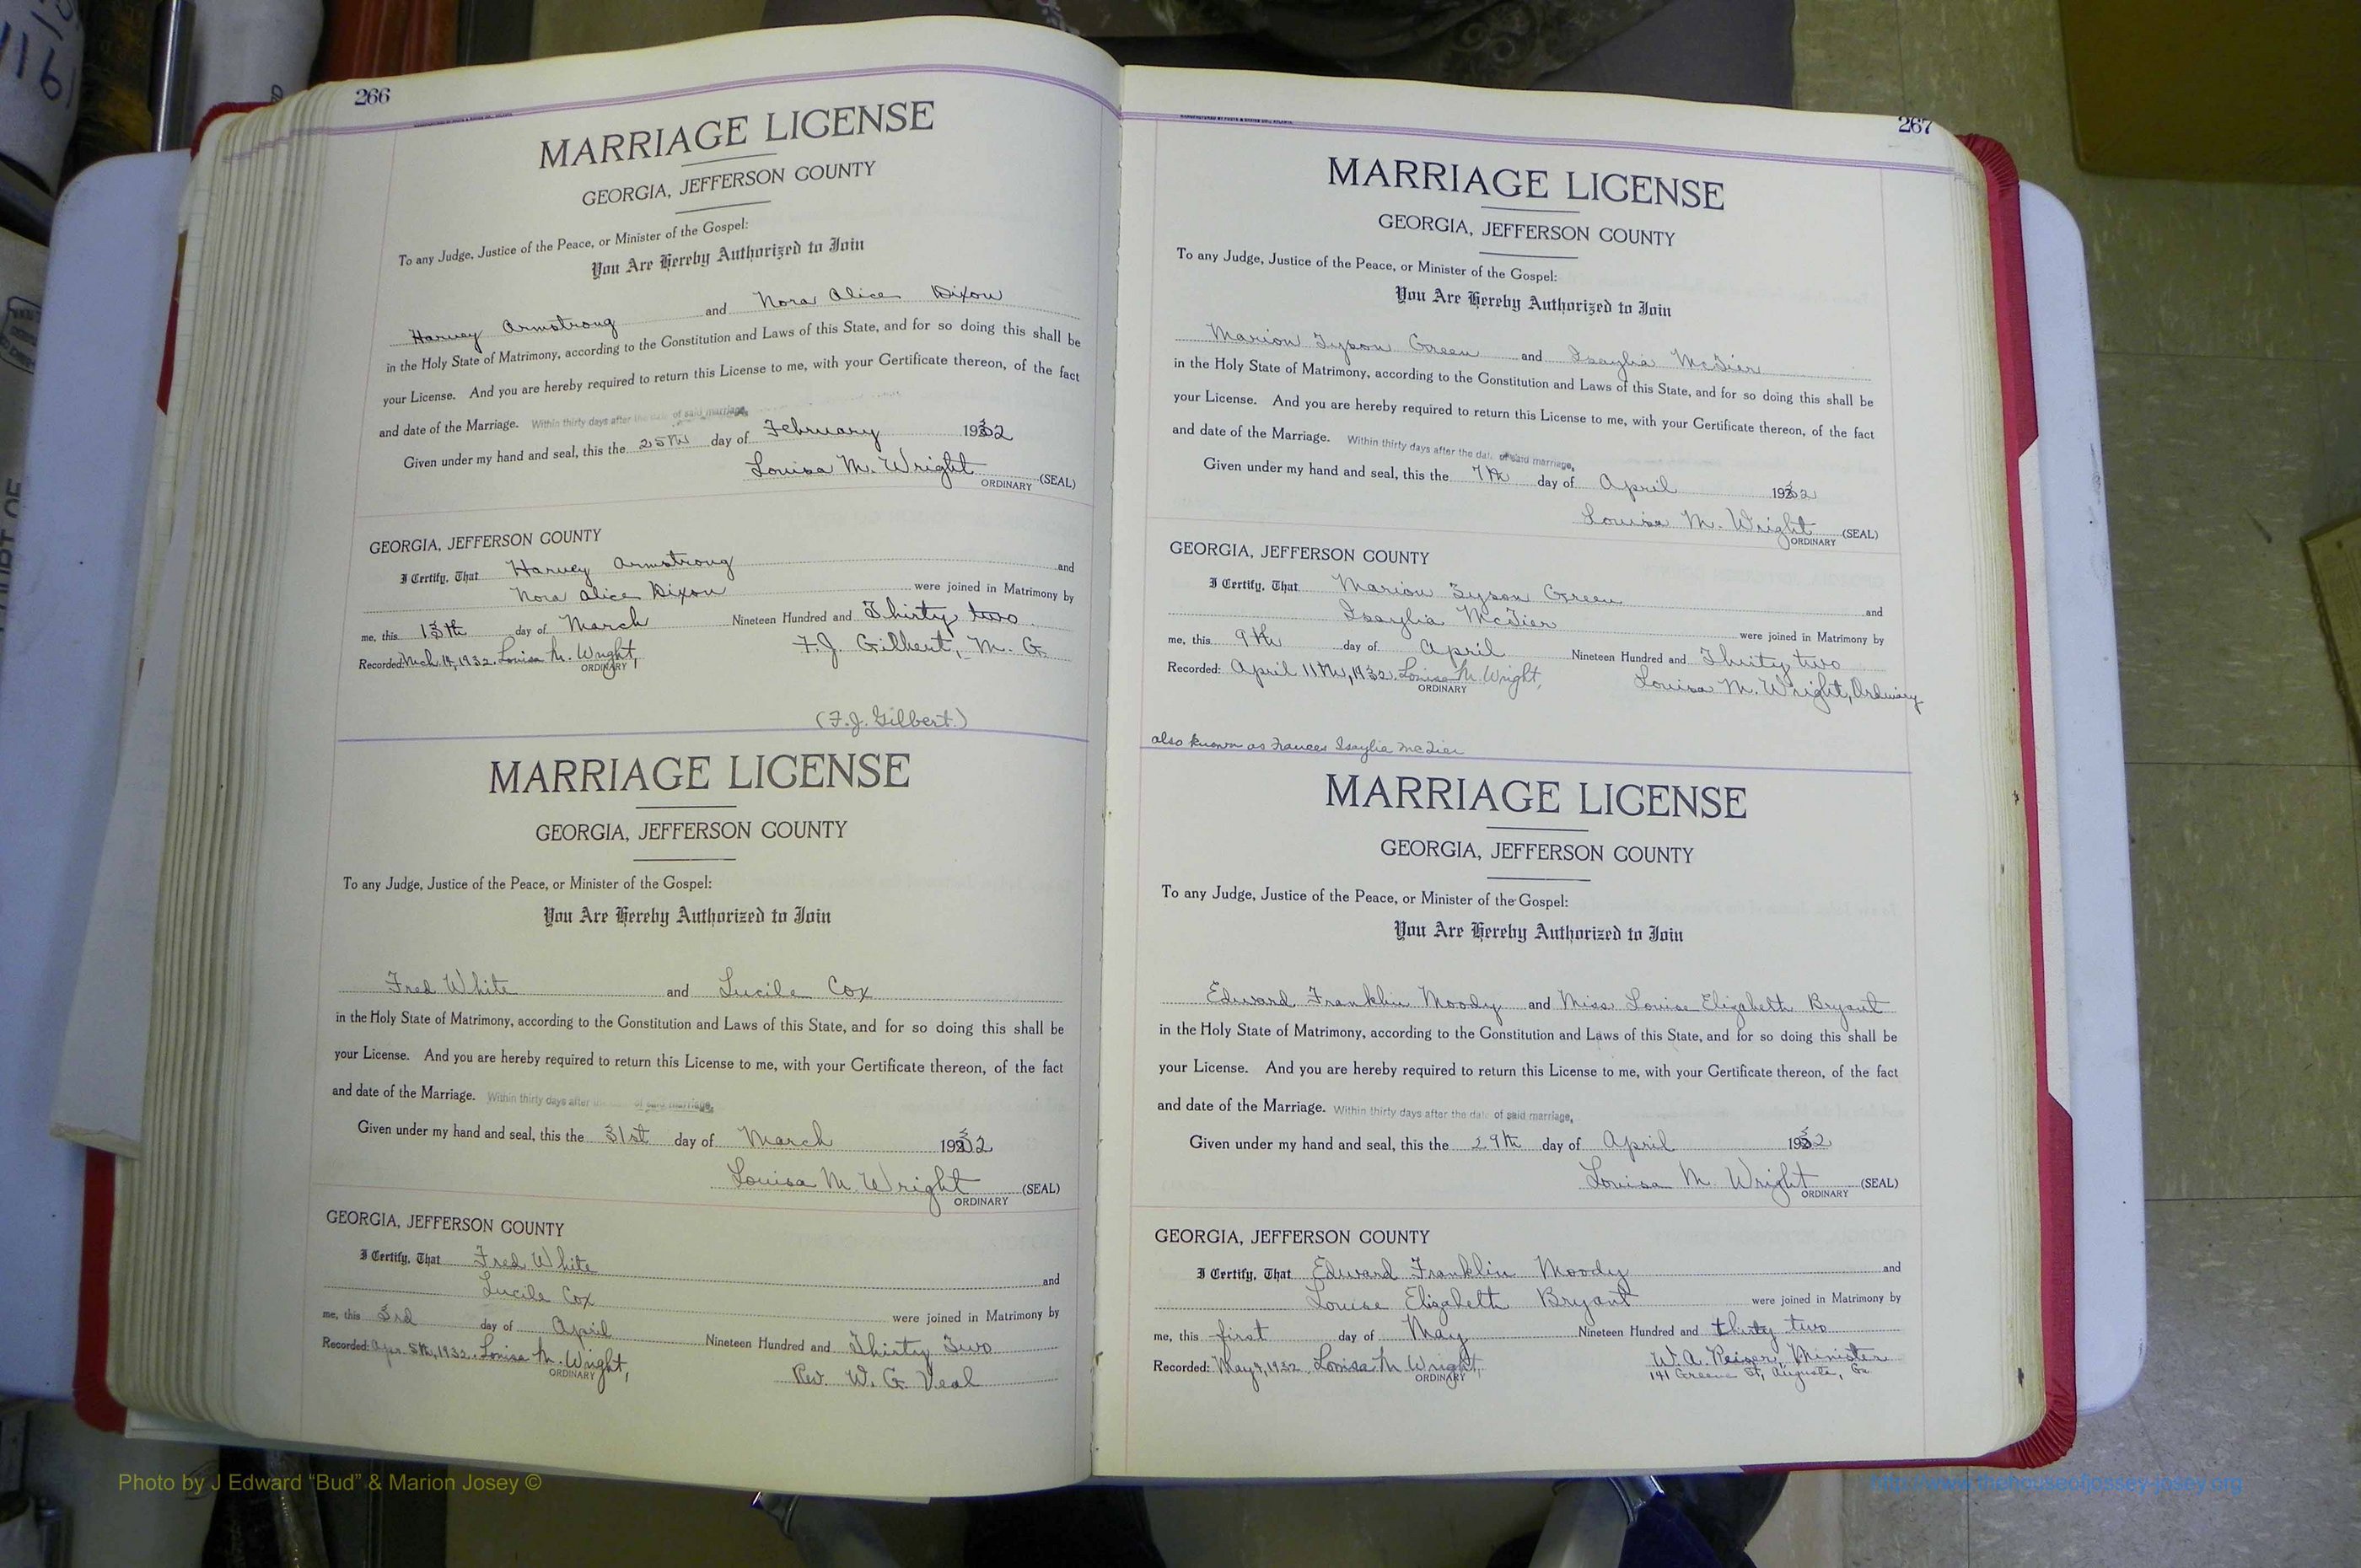 266
MARRIAGE LICENSE
GEORGIA, JEFFERSON COUNTY
To any Judge, Justice of the Peace, or Minister of the Gospel:
You Are Hereby Authorized to Join
Harvey Armstrong and Nora Alice Dixon
in the Holy State of Matrimony, according to the Constitution and Laws of this State, and for so doing this shall be
your License. And you are hereby required to return this License to me, with your Certificate thereon, of the fact
and date of the Marriage. Within thirty days after the date of said marriage,
Given under my hand and seal, this the 25th day of February 1932
Louisa M. Wright (SEAL)
ORDINARY
GEORGIA, JEFFERSON COUNTY
I Certify, That Harvey Armstrong and
Nora Alice Dixon were joined in Matrimony by
me, this 13th day of March Nineteen Hundred and Thirty two
Recorded: Mch. 14, 1932. Louisa M. Wright, F. J. Gilbert, M. G.
ORDINARY
(F. J. Gilbert.)
MARRIAGE LICENSE
GEORGIA, JEFFERSON COUNTY
To any Judge, Justice of the Peace, or Minister of the Gospel:
You Are Hereby Authorized to Join
Fred White and Lucile Cox
in the Holy State of Matrimony, according to the Constitution and Laws of this State, and for so doing this shall be
your License. And you are hereby required to return this License to me, with your Certificate thereon, of the fact
and date of the Marriage. Within thirty days after the date of said marriage,
Given under my hand and seal, this the 31st day of March 1932
Louisa M. Wright (SEAL)
ORDINARY
GEORGIA, JEFFERSON COUNTY
I Certify, That Fred White and
Lucile Cox were joined in Matrimony by
me, this 3rd day of April Nineteen Hundred and Thirty Two
Recorded: Apr. 5th, 1932. Louisa M. Wright, Rev. W. G. Veal
ORDINARY
267
MARRIAGE LICENSE
GEORGIA, JEFFERSON COUNTY
To any Judge, Justice of the Peace, or Minister of the Gospel:
You Are Hereby Authorized to Join
Marion Tyson Green and Isaylia McTier
in the Holy State of Matrimony, according to the Constitution and Laws of this State, and for so doing this shall be
your License. And you are hereby required to return this License to me, with your Certificate thereon, of the fact
and date of the Marriage. Within thirty days after the date of said marriage,
Given under my hand and seal, this the 7th day of April 1932
Louisa M. Wright (SEAL)
ORDINARY
GEORGIA, JEFFERSON COUNTY
I Certify, That Marion Tyson Green and
Isaylia McTier were joined in Matrimony by
me, this 9th day of April Nineteen Hundred and Thirty two
Recorded: April 11th, 1932. Louisa M. Wright, Louisa M. Wright, Ordinary
ORDINARY
also known as Frances Isaylia McTier
MARRIAGE LICENSE
GEORGIA, JEFFERSON COUNTY
To any Judge, Justice of the Peace, or Minister of the Gospel:
You Are Hereby Authorized to Join
Edward Franklin Moody and Miss Louise Elizabeth Bryant
in the Holy State of Matrimony, according to the Constitution and Laws of this State, and for so doing this shall be
your License. And you are hereby required to return this License to me, with your Certificate thereon, of the fact
and date of the Marriage. Within thirty days after the date of said marriage,
Given under my hand and seal, this the 29th day of April 1932
Louisa M. Wright (SEAL)
ORDINARY
GEORGIA, JEFFERSON COUNTY
I Certify, That Edward Franklin Moody and
Louise Elizabeth Bryant were joined in Matrimony by
me, this first day of May Nineteen Hundred and thirty two
Recorded: May 4, 1932. Louisa M. Wright, W. A. Reiser, Minister
ORDINARY 141 Greene St, Augusta, Ga
Photo by J Edward "Bud" & Marion Josey ©
http://www.thehouseofjossey-josey.org